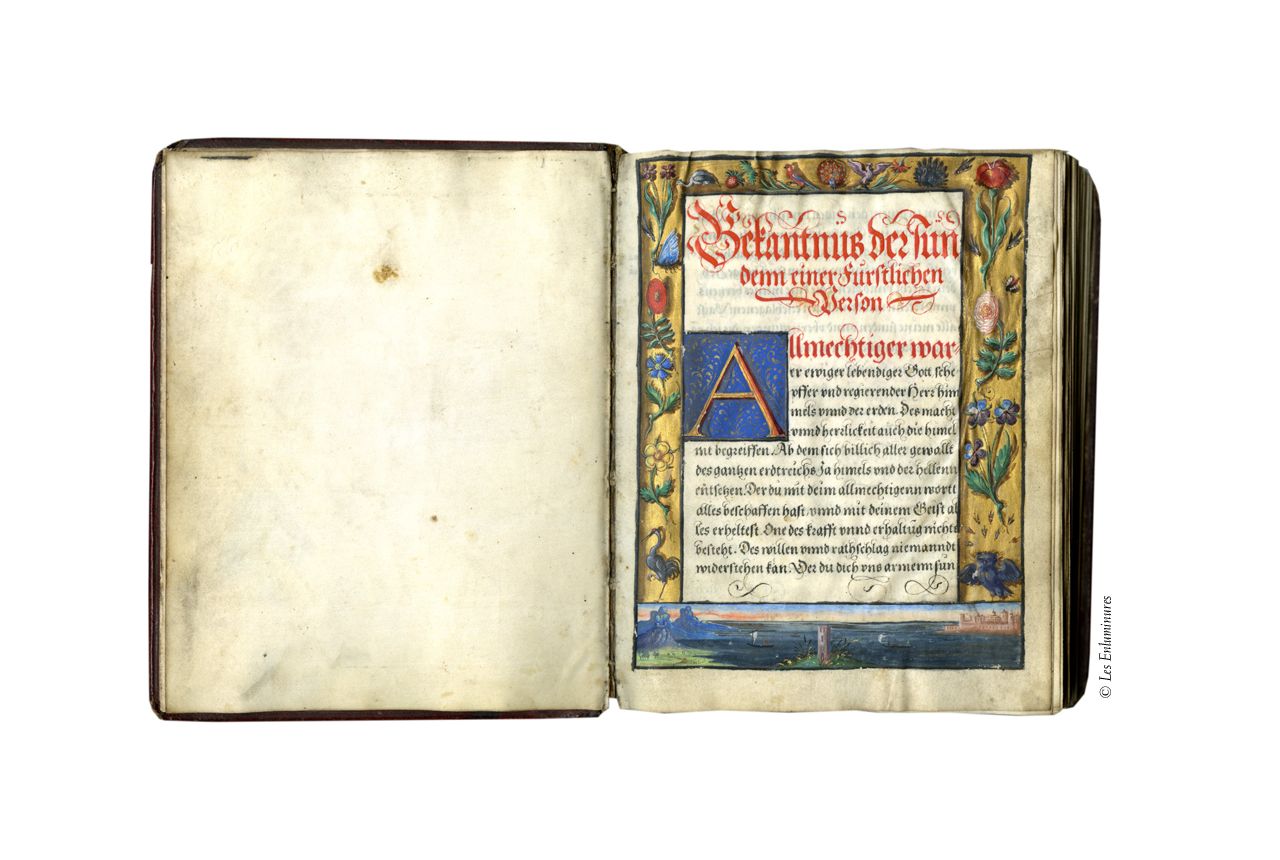 Bekantnus der sun
denn einer Furstlichen
Person
Allmechtiger war-
er ewiger lebendiger Gott sche-
pffer vnd regierender Herr him
mels vnnd der erden. Des macht
vnnd herrlickeit auch die himel
nit begreiffen. Ab dem sich billich aller gewallt
des gantzen erdtreichs Ja himels vnd der hellenn
entsetzen. Der du mit deim allmechtigenn wortt
alles beschaffen hast vnnd mit deinem Geist al
les erheltest. One des krafft vnnd erhaltūg nichts
besteht. Des willen vnnd rathschlag niemanndt
widerstehen kan. Der du dich vns armenn sün
© Les Enluminures